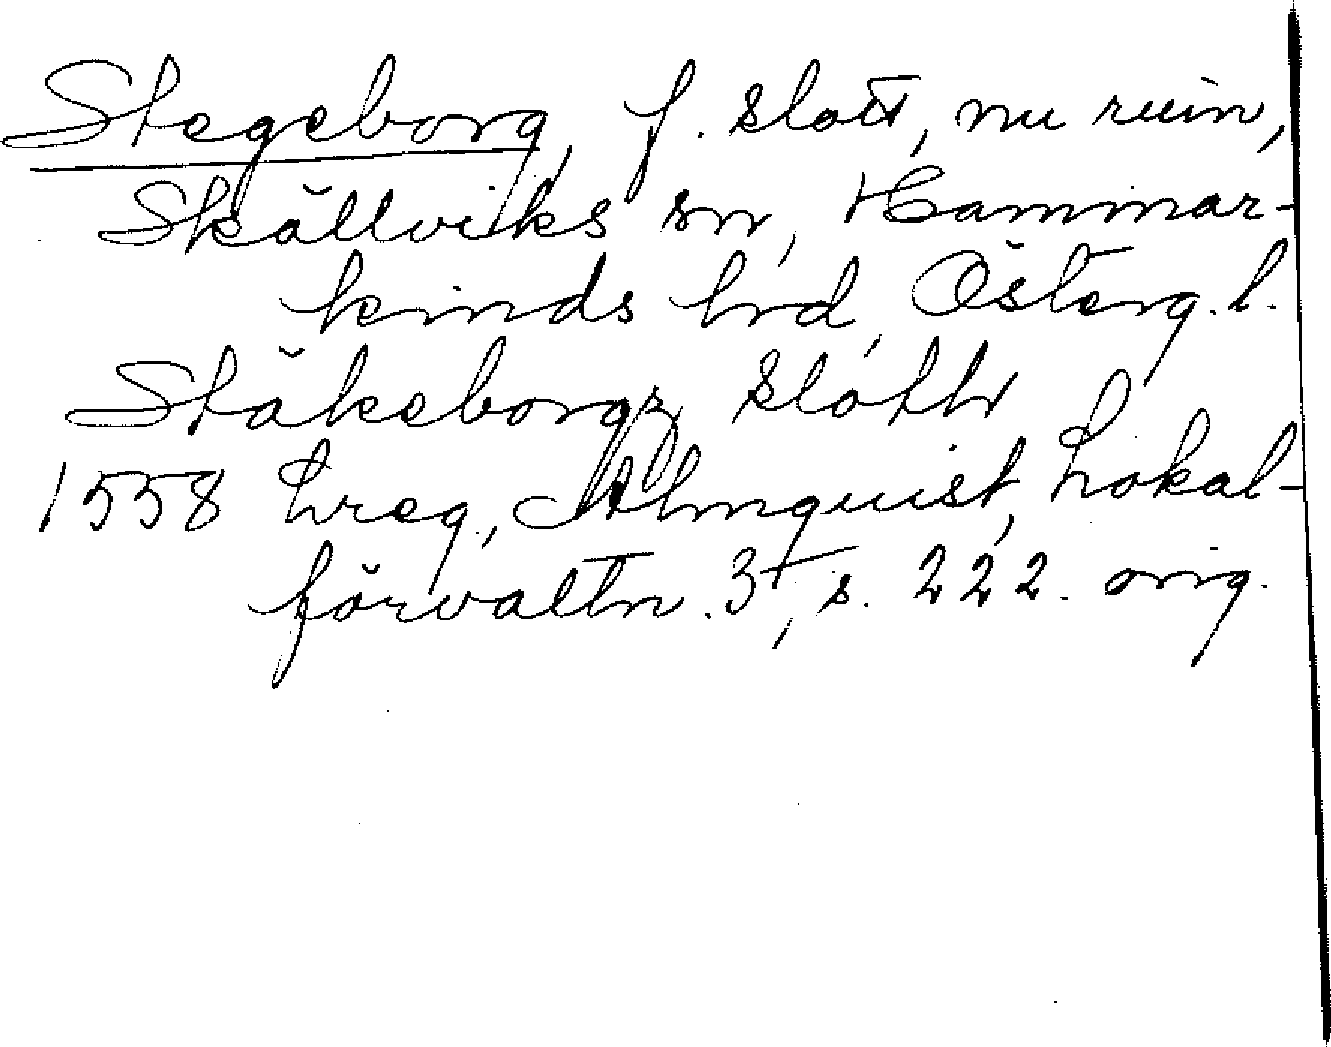 Stegeborg, f. slott, nu ruin,
Skällviks sn, Hammar-
kinds hd, Österg. l.
Stäkeborgz slåtth
1558 hreg, Almquist, Lokal-
förvaltn. 3, s. 222. orig.